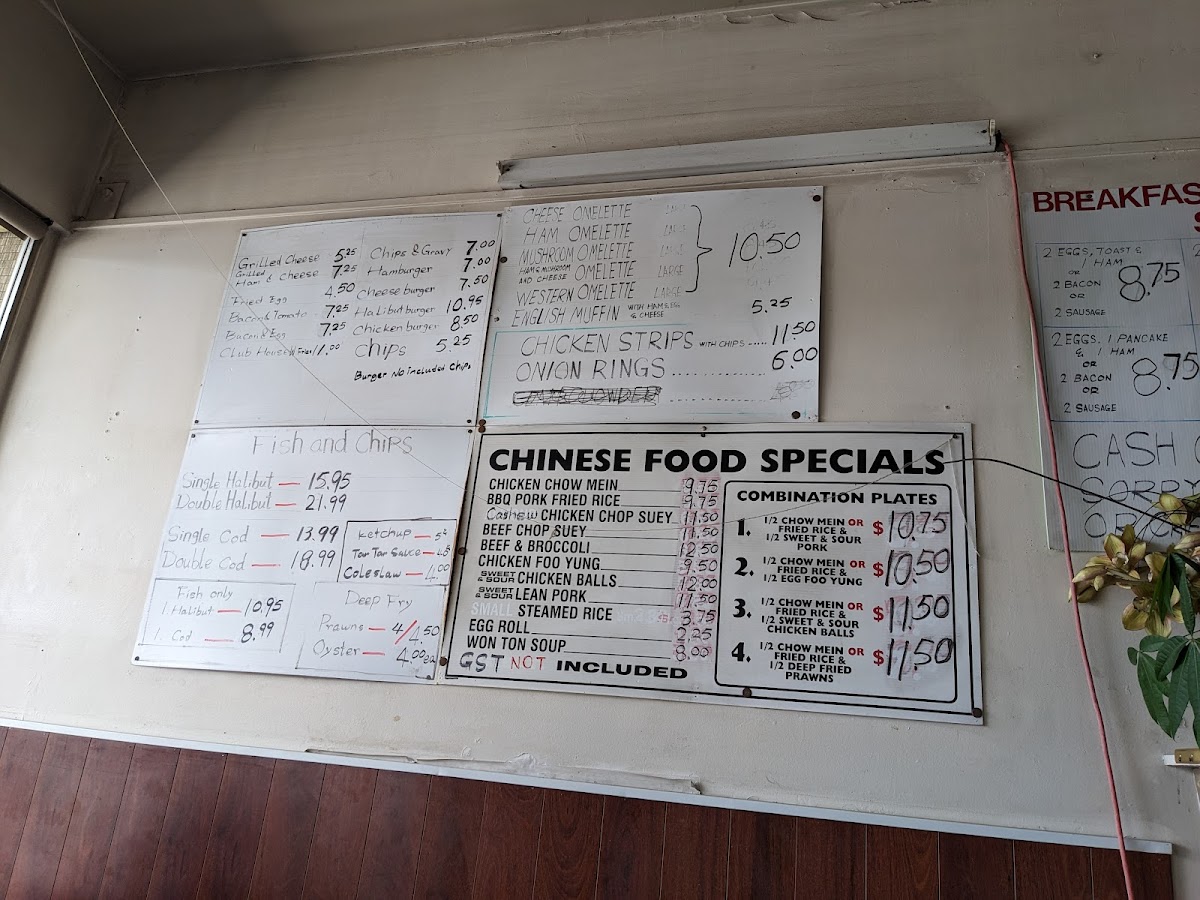 Grilled Cheese 5.25
Grilled Ham & Cheese 7.25
Fried Egg 4.50
Bacon & Tomato 7.25
Bacon & Egg 7.25
Club House W/Fries 11.00
Chips & Gravy 7.00
Hamburger 7.00
Cheese burger 7.50
Halibut burger 10.95
Chicken burger 8.50
Chips 5.25
Burger No included Chips
CHEESE OMELETTE
HAM OMELETTE
MUSHROOM OMELETTE
HAM & MUSHROOM AND CHEESE OMELETTE LARGE
WESTERN OMELETTE LARGE
10.50
ENGLISH MUFFIN WITH HAM & CHEESE 5.25
CHICKEN STRIPS WITH CHIPS ..... 11.50
ONION RINGS .............. 6.00
Fish and Chips
Single Halibut — 15.95
Double Halibut — 21.99
Single Cod — 13.99
Double Cod — 18.99
Ketchup —
Tar Tar Sauce —
Coleslaw — 4.00
Fish only
1. Halibut — 10.95
1. Cod — 8.99
Deep Fry
Prawns — 4/4.50
Oyster — 4.00 ea
CHINESE FOOD SPECIALS
CHICKEN CHOW MEIN 9.75
BBQ PORK FRIED RICE 9.75
Cashew CHICKEN CHOP SUEY 11.50
BEEF CHOP SUEY 11.50
BEEF & BROCCOLI 12.50
CHICKEN FOO YUNG 9.50
SWEET & SOUR CHICKEN BALLS 12.00
SWEET & SOUR LEAN PORK 11.50
SMALL STEAMED RICE 3.75
EGG ROLL 2.25
WON TON SOUP 8.00
GST NOT INCLUDED
COMBINATION PLATES
1. 1/2 CHOW MEIN OR $10.75
FRIED RICE &
1/2 SWEET & SOUR
PORK
2. 1/2 CHOW MEIN OR $10.50
FRIED RICE &
1/2 EGG FOO YUNG
3. 1/2 CHOW MEIN OR $11.50
FRIED RICE &
1/2 SWEET & SOUR
CHICKEN BALLS
4. 1/2 CHOW MEIN OR $11.50
FRIED RICE &
1/2 DEEP FRIED
PRAWNS
BREAKFAS
2 EGGS, TOAST &
OR 1 HAM
2 BACON 8.75
OR
2 SAUSAGE
2 EGGS, 1 PANCAKE
& 1 HAM
OR
2 BACON 8.75
OR
2 SAUSAGE
CASH
SORRY